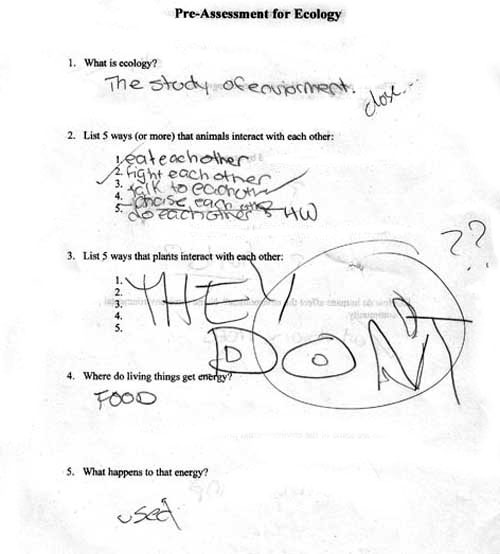 Pre-Assessment for Ecology
1. What is ecology?
The study of enviorment.
close...
2. List 5 ways (or more) that animals interact with each other:
1. eat each other
2. fight each other
3. talk to each other
4. each other
5. do each other's HW
??
3. List 5 ways that plants interact with each other:
1.
2.
3.
4.
5.
THEY
DON'T
4. Where do living things get energy?
FOOD
5. What happens to that energy?
used